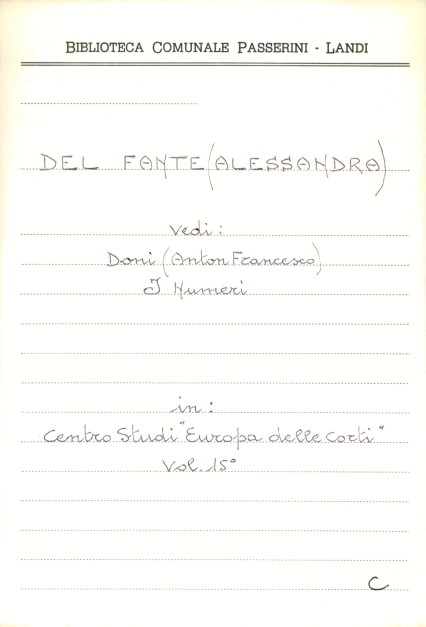 BIBLIOTECA COMUNALE PASSERINI - LANDI
DEL FANTE (ALESSANDRA)
Vedi:
Doni (Anton Francesco)
I Numeri
in:
Centro Studi "Europa delle Corti"
Vol. 15°
C